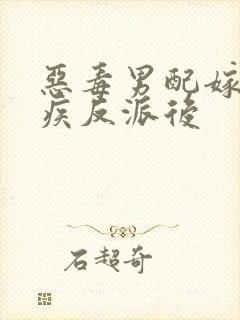 惡毒男配嫁
疾反派後
石超奇